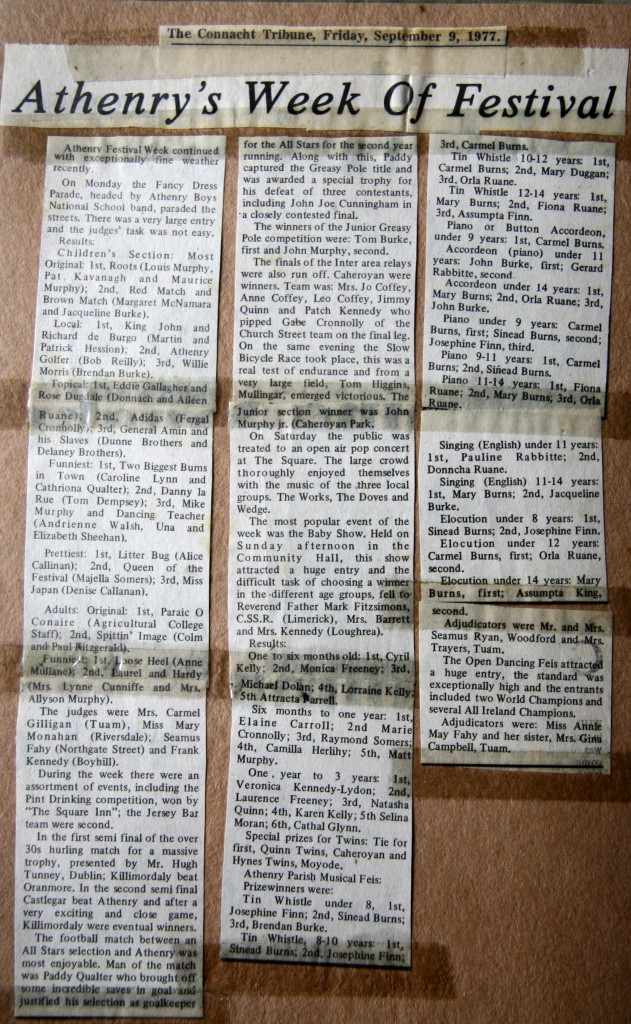 The Connacht Tribune, Friday, September 9, 1977.
Athenry's Week Of Festival
Athenry Festival Week continued
with exceptionally fine weather
recently.
On Monday the Fancy Dress
Parade, headed by Athenry Boys
National School band, paraded the
streets. There was a very large entry
and the judges' task was not easy.
Results:
Children's Section: Most
Original: 1st, Roots (Louis Murphy,
Pat Kavanagh and Maurice
Murphy); 2nd, Red Match and
Brown Match (Margaret McNamara
and Jacqueline Burke).
Local: 1st, King John and
Richard de Burgo (Martin and
Patrick Hession); 2nd, Athenry
Golfer (Bob Reilly); 3rd, Willie
Morris (Brendan Burke).
Topical: 1st, Eddie Gallagher and
Rose Dugdale (Donnach and Aileen
Ruane); 2nd, Adidas (Fergal
Cronnolly); 3rd, General Amin and
his Slaves (Dunne Brothers and
Delaney Brothers).
Funniest: 1st, Two Biggest Bums
in Town (Caroline Lynn and
Cathriona Qualter); 2nd, Danny la
Rue (Tom Dempsey); 3rd, Mike
Murphy and Dancing Teacher
(Andrienne Walsh, Una and
Elizabeth Sheehan).
Prettiest: 1st, Litter Bug (Alice
Callinan); 2nd, Queen of the
Festival (Majella Somers); 3rd, Miss
Japan (Denise Callanan).
Adults: Original: 1st, Paraic O
Conaire (Agricultural College
Staff); 2nd, Spittin' Image (Colm
and Paul Fitzgerald).
Funniest: 1st, Loose Heel (Anne
Mullane); 2nd, Laurel and Hardy
(Mrs. Lynne Cunniffe and Mrs.
Allyson Murphy).
The judges were Mrs. Carmel
Gilligan (Tuam), Miss Mary
Monahan (Riversdale); Seamus
Fahy (Northgate Street) and Frank
Kennedy (Boyhill).
During the week there were an
assortment of events, including the
Pint Drinking competition, won by
"The Square Inn"; the Jersey Bar
team were second.
In the first semi final of the over
30s hurling match for a massive
trophy, presented by Mr. Hugh
Tunney, Dublin; Killimordaly beat
Oranmore. In the second semi final
Castlegar beat Athenry and after a
very exciting and close game,
Killimordaly were eventual winners.
The football match between an
All Stars selection and Athenry was
most enjoyable. Man of the match
was Paddy Qualter who brought off
some incredible saves in goal and
justified his selection as goalkeeper
for the All Stars for the second year
running. Along with this, Paddy
captured the Greasy Pole title and
was awarded a special trophy for
his defeat of three contestants,
including John Joe Cunningham in
a closely contested final.
The winners of the Junior Greasy
Pole competition were: Tom Burke,
first and John Murphy, second.
The finals of the Inter area relays
were also run off. Caheroyan were
winners. Team was: Mrs. Jo Coffey,
Anne Coffey, Leo Coffey, Jimmy
Quinn and Patch Kennedy who
pipped Gabe Cronnolly of the
Church Street team on the final leg.
On the same evening the Slow
Bicycle Race took place, this was a
real test of endurance and from a
very large field, Tom Higgins,
Mullingar, emerged victorious. The
Junior section winner was John
Murphy jr. (Caheroyan Park.
On Saturday the public was
treated to an open air pop concert
at The Square. The large crowd
thoroughly enjoyed themselves
with the music of the three local
groups. The Works, The Doves and
Wedge.
The most popular event of the
week was the Baby Show. Held on
Sunday afternoon in the
Community Hall, this show
attracted a huge entry and the
difficult task of choosing a winner
in the different age groups, fell to
Reverend Father Mark Fitzsimons,
C.SS.R. (Limerick), Mrs. Barrett
and Mrs. Kennedy (Loughrea).
Results:
One to six months old: 1st, Cyril
Kelly; 2nd, Monica Freeney; 3rd,
Michael Dolan; 4th, Lorraine Kelly;
5th Attracta Farrell.
Six months to one year: 1st,
Elaine Carroll; 2nd Marie
Cronnolly; 3rd, Raymond Somers;
4th, Camilla Herlihy; 5th, Matt
Murphy.
One year to 3 years: 1st,
Veronica Kennedy-Lydon; 2nd,
Laurence Freeney; 3rd, Natasha
Quinn; 4th, Karen Kelly; 5th Selina
Moran; 6th, Cathal Glynn.
Special prizes for Twins: Tie for
first, Quinn Twins, Caheroyan and
Hynes Twins, Moyode.
Athenry Parish Musical Feis:
Prizewinners were:
Tin Whistle under 8, 1st,
Josephine Finn; 2nd, Sinead Burns;
3rd, Brendan Burke.
Tin Whistle, 8-10 years: 1st,
Sinead Burns; 2nd, Josephine Finn;
3rd, Carmel Burns.
Tin Whistle 10-12 years: 1st,
Carmel Burns; 2nd, Mary Duggan;
3rd, Orla Ruane.
Tin Whistle 12-14 years: 1st,
Mary Burns; 2nd, Fiona Ruane;
3rd, Assumpta Finn.
Piano or Button Accordeon,
under 9 years: 1st, Carmel Burns.
Accordeon (piano) under 11
years: John Burke, first; Gerard
Rabbitte, second.
Accordeon under 14 years: 1st,
Mary Burns; 2nd, Orla Ruane; 3rd,
John Burke.
Piano under 9 years: Carmel
Burns, first; Sinead Burns, second;
Josephine Finn, third.
Piano 9-11 years: 1st, Carmel
Burns; 2nd, Sinead Burns.
Piano 11-14 years: 1st, Fiona
Ruane; 2nd, Mary Burns; 3rd, Orla
Ruane.
Singing (English) under 11 years:
1st, Pauline Rabbitte; 2nd,
Donncha Ruane.
Singing (English) 11-14 years:
1st, Mary Burns; 2nd, Jacqueline
Burke.
Elocution under 8 years: 1st,
Sinead Burns; 2nd, Josephine Finn.
Elocution under 12 years:
Carmel Burns, first; Orla Ruane,
second.
Elocution under 14 years: Mary
Burns, first; Assumpta King,
second.
Adjudicators were Mr. and Mrs.
Seamus Ryan, Woodford and Mrs.
Trayers, Tuam.
The Open Dancing Feis attracted
a huge entry, the standard was
exceptionally high and the entrants
included two World Champions and
several All Ireland Champions.
Adjudicators were: Miss Annie
May Fahy and her sister, Mrs. Gina
Campbell, Tuam.